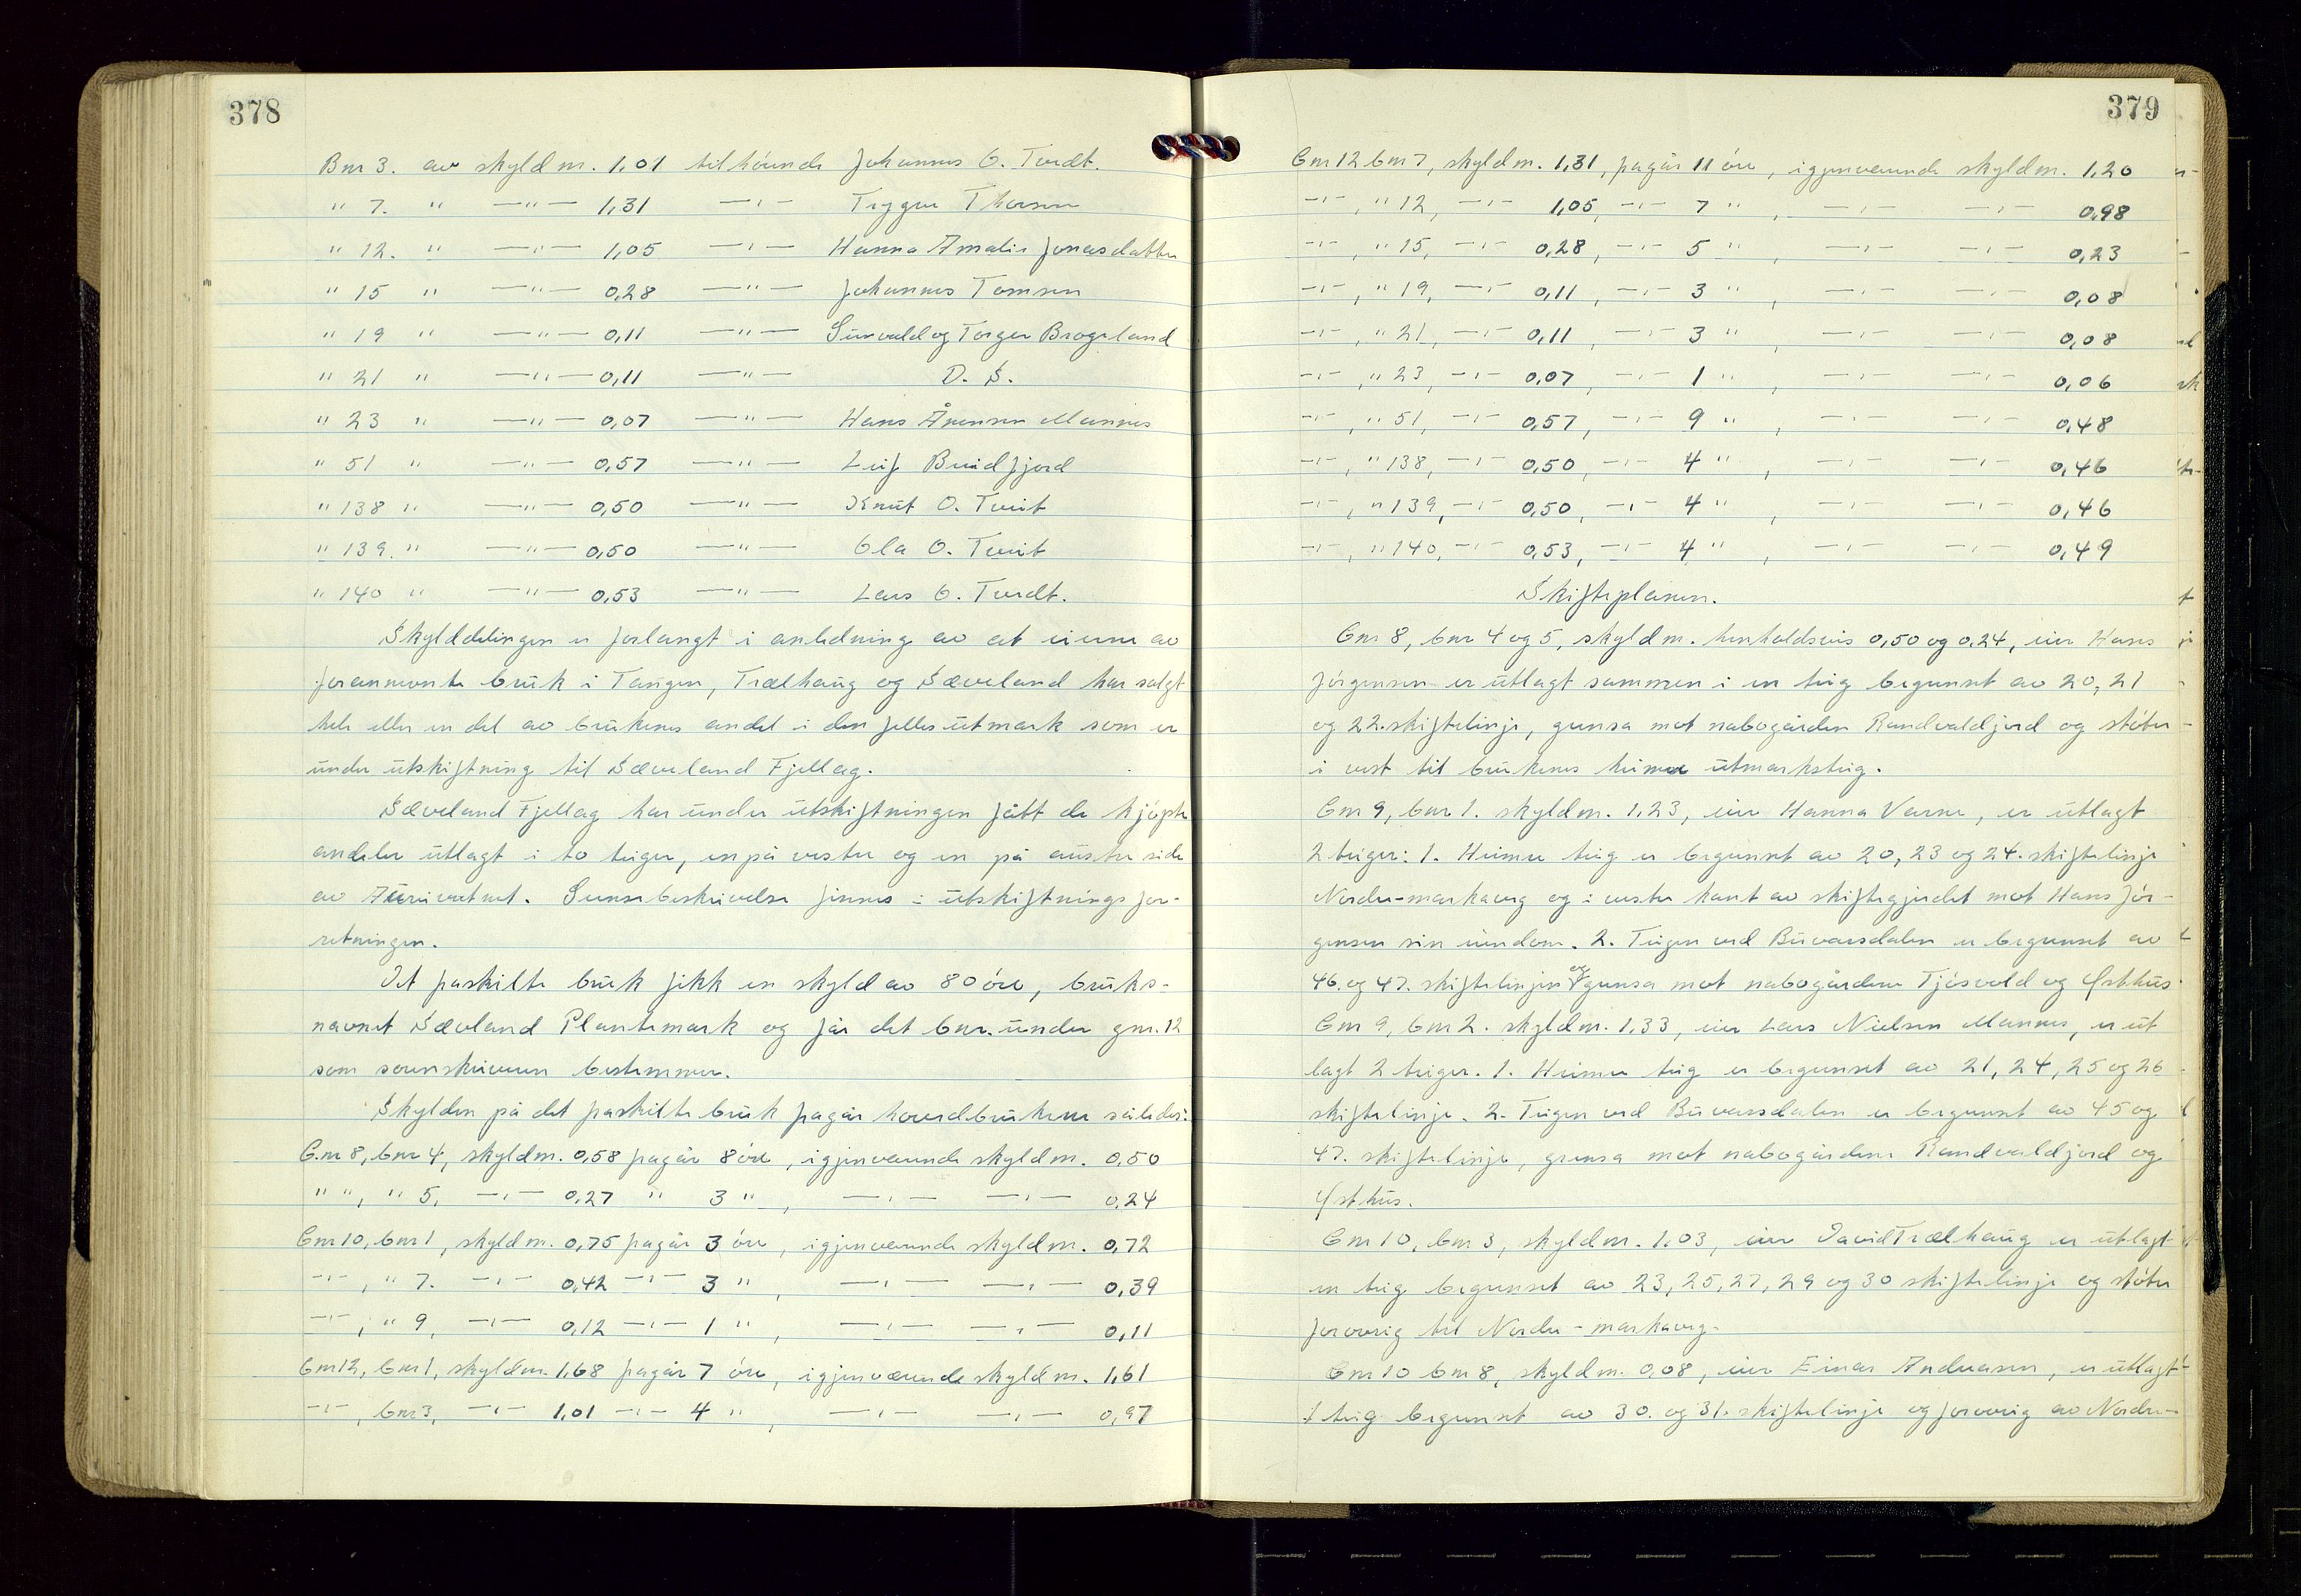 378
Bnr 3. av skyldm. 1,01 tilhörende Johannes O. Tvedt.
" 7. " —"— 1,31 —"— Trygve Thorsen
" 12. " —"— 1,05 —"— Hanna Amalie Jonasdatter
" 15 " —"— 0,28 —"— Johannes Tomsen
" 19 " —"— 0,11 —"— Sürvald og Torger Brogeland
" 21 " —"— 0,11 —"— D. S.
" 23 " —"— 0,07 —"— Hans Årensen Mannes
" 51 " —"— 0,57 —"— Leif Breidfjord
" 138 " —"— 0,50 —"— Knut O. Tveit
" 139. " —"— 0,50 —"— Ola O. Tveit
" 140 " —"— 0,53 —"— Lars O. Tvedt.
Skylddelingen er forlangt i anledning av at eierne av
forannevnte bruk i Tangen, Trælhaug og Sæveland har solgt
hele eller en del av brukenes andel i den felles utmark som er
under utskiftning til Sæveland Fjellag.
Sæveland Fjellag har under utskiftningen fått de kjöpte
andeler utlagt i to teiger, en på vestre og en på austre side
av Aurivatnet. Grensebeskrivelse finnes i utskiftningsfor-
retningen.
Det fraskilte bruk fikk en skyld av 80 öre, bruks-
navnet Sævland Plantemark og får det bnr. under gnr. 12
som sorenskriveren bestemmer.
Skylden på det fraskilte bruk fragår hovedbrukene således:
Gnr 8, bnr 4, skyldm. 0,58 fragår 8 öre, igjenværende skyldm. 0,50
" ", " 5, —"— 0,27 " 3 ", —"— —"— 0,24
Gnr 10, bnr 1, skyldm. 0,75 fragår 3 öre, igjenværende skyldm. 0,72
—"—, " 7. —"— 0,42 —"— 3 ", —"— —"— 0,39
—"—, " 9, —"— 0,12 —"— 1 ", —"— —"— 0,11
Gnr 12, bnr 1, skyldm. 1,68 fragår 7 öre, igjenværende skyldm. 1,61
—"—, bnr 3, —"— 1,01 —"— 4 ", —"— —"— 0,97
379
Gnr 12 bnr 7, skyldm. 1,31, fragår 11 öre, igjenværende skyldm. 1,20
—"—, " 12, —"— 1,05, —"— 7 ", —"— —"— 0,98
—"—, " 15, —"— 0,28, —"— 5 ", —"— —"— 0,23
—"—, " 19, —"— 0,11, —"— 3 ", —"— —"— 0,08
—"—, " 21, —"— 0,11, —"— 3 ", —"— —"— 0,08
—"—, " 23, —"— 0,07, —"— 1 ", —"— —"— 0,06
—"—, " 51, —"— 0,57, —"— 9 ", —"— —"— 0,48
—"—, " 138, —"— 0,50, —"— 4 ", —"— —"— 0,46
—"—, " 139, —"— 0,50, —"— 4 ", —"— —"— 0,46
—"—, " 140, —"— 0,53, —"— 4 ", —"— —"— 0,49
Skifteplanen.
Gnr 8, bnr 4 og 5, skyldm. henholdsvis 0,50 og 0,24, eier Hans
Jörgensen er utlagt sammen i en teig begrenset av 20, 21
og 22. skiftelinje, grensa mot nabogården Randvaldjord og stöter
i vest til brukenes heimre utmarksteig.
Gnr 9, bnr 1. skyldm. 1,23, eier Hanna Varne, er utlagt
2 teiger: 1. Heimre teig er begrenset av 20, 23 og 24. skiftelinje
Nordre-markaveg og i vestre kant av skiftegjerdet mot Hans Jör-
gensen sin eiendom. 2. Teigen ved Buvassdalen er begrenset av
46. og 47. skiftelinjen og grensa mot nabogårdene Tjösvold og Östhus
Gnr 9, bnr 2. skyldm. 1,33, eier Lars Nielsen Mannes, er ut
lagt 2 teiger. 1. Heimre teig er begrenset av 21, 24, 25 og 26
skiftelinje. 2. Teigen ved Buvassdalen er begrenset av 45 og
47. skiftelinje, grensa mot nabogårdene Randvaldjord og
Östhus.
Gnr 10, bnr 3, skyldm. 1,03, eier David Trælhaug er utlagt
en teig begrenset av 23, 25, 27, 29 og 30 skiftelinje og stöter
forövrig til Nordre-markaveg.
Gnr 10 bnr 8, skyldm. 0,08, eier Einar Andreasen, er utlagt
1 teig begrenset av 30. og 31. skiftelinje og forövrig av Nordre-